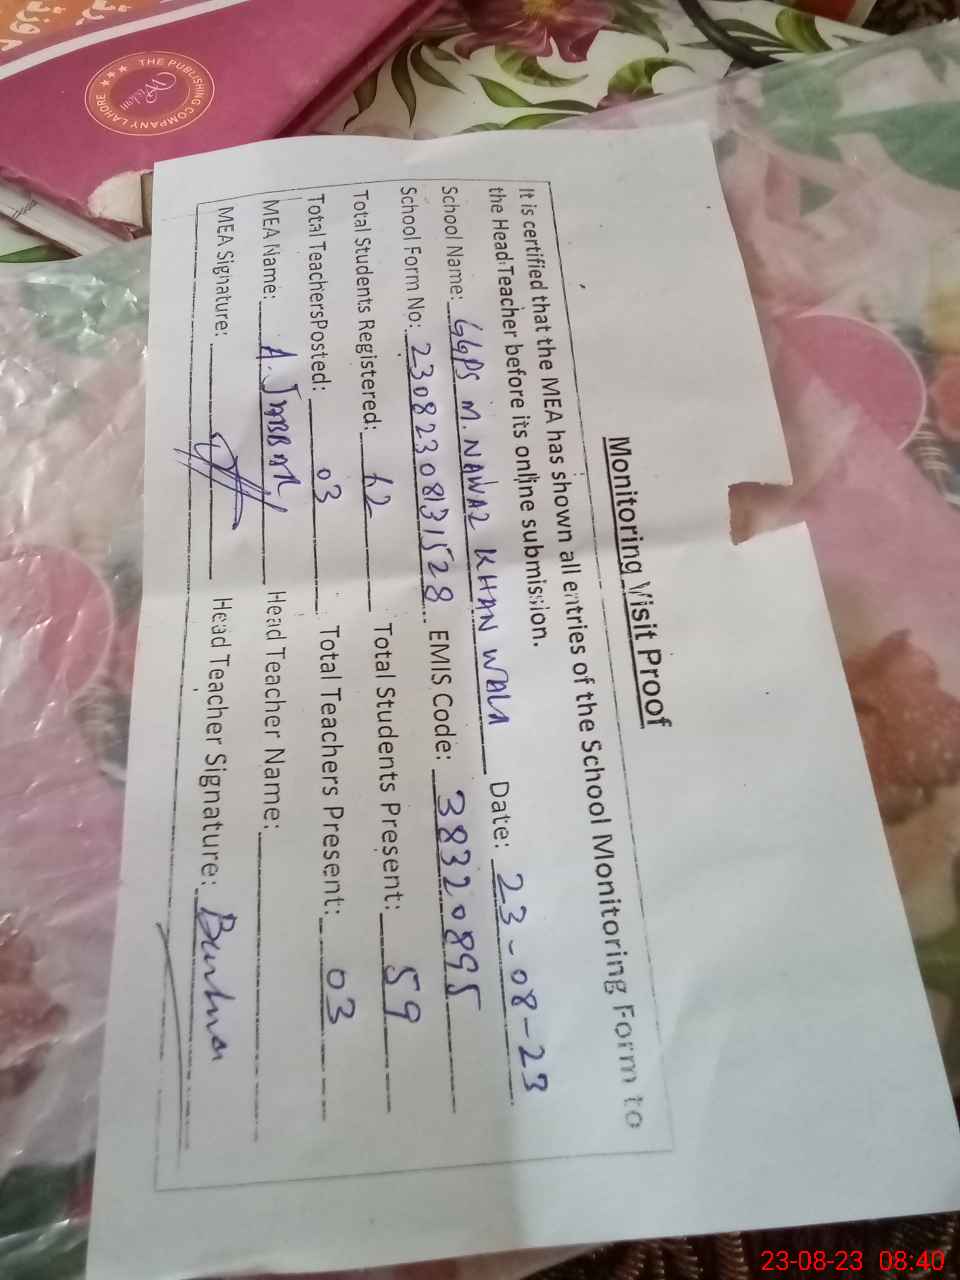 THE PUBLISHING COMPANY LAHORE
Monitoring Visit Proof
It is certified that the MEA has shown all entries of the School Monitoring Form to
the Head Teacher before its online submission.
School Name: GGPS M. NAWAZ KHAN WALA Date: 23-08-23
School Form No: 23082308131528 EMIS Code: 38320895
Total Students Registered: 62 Total Students Present: 59
Total TeachersPosted: 03 Total Teachers Present: 03
MEA Name: A. JABBAR Head Teacher Name:
MEA Signature: Head Teacher Signature:
23-08-23 08:40